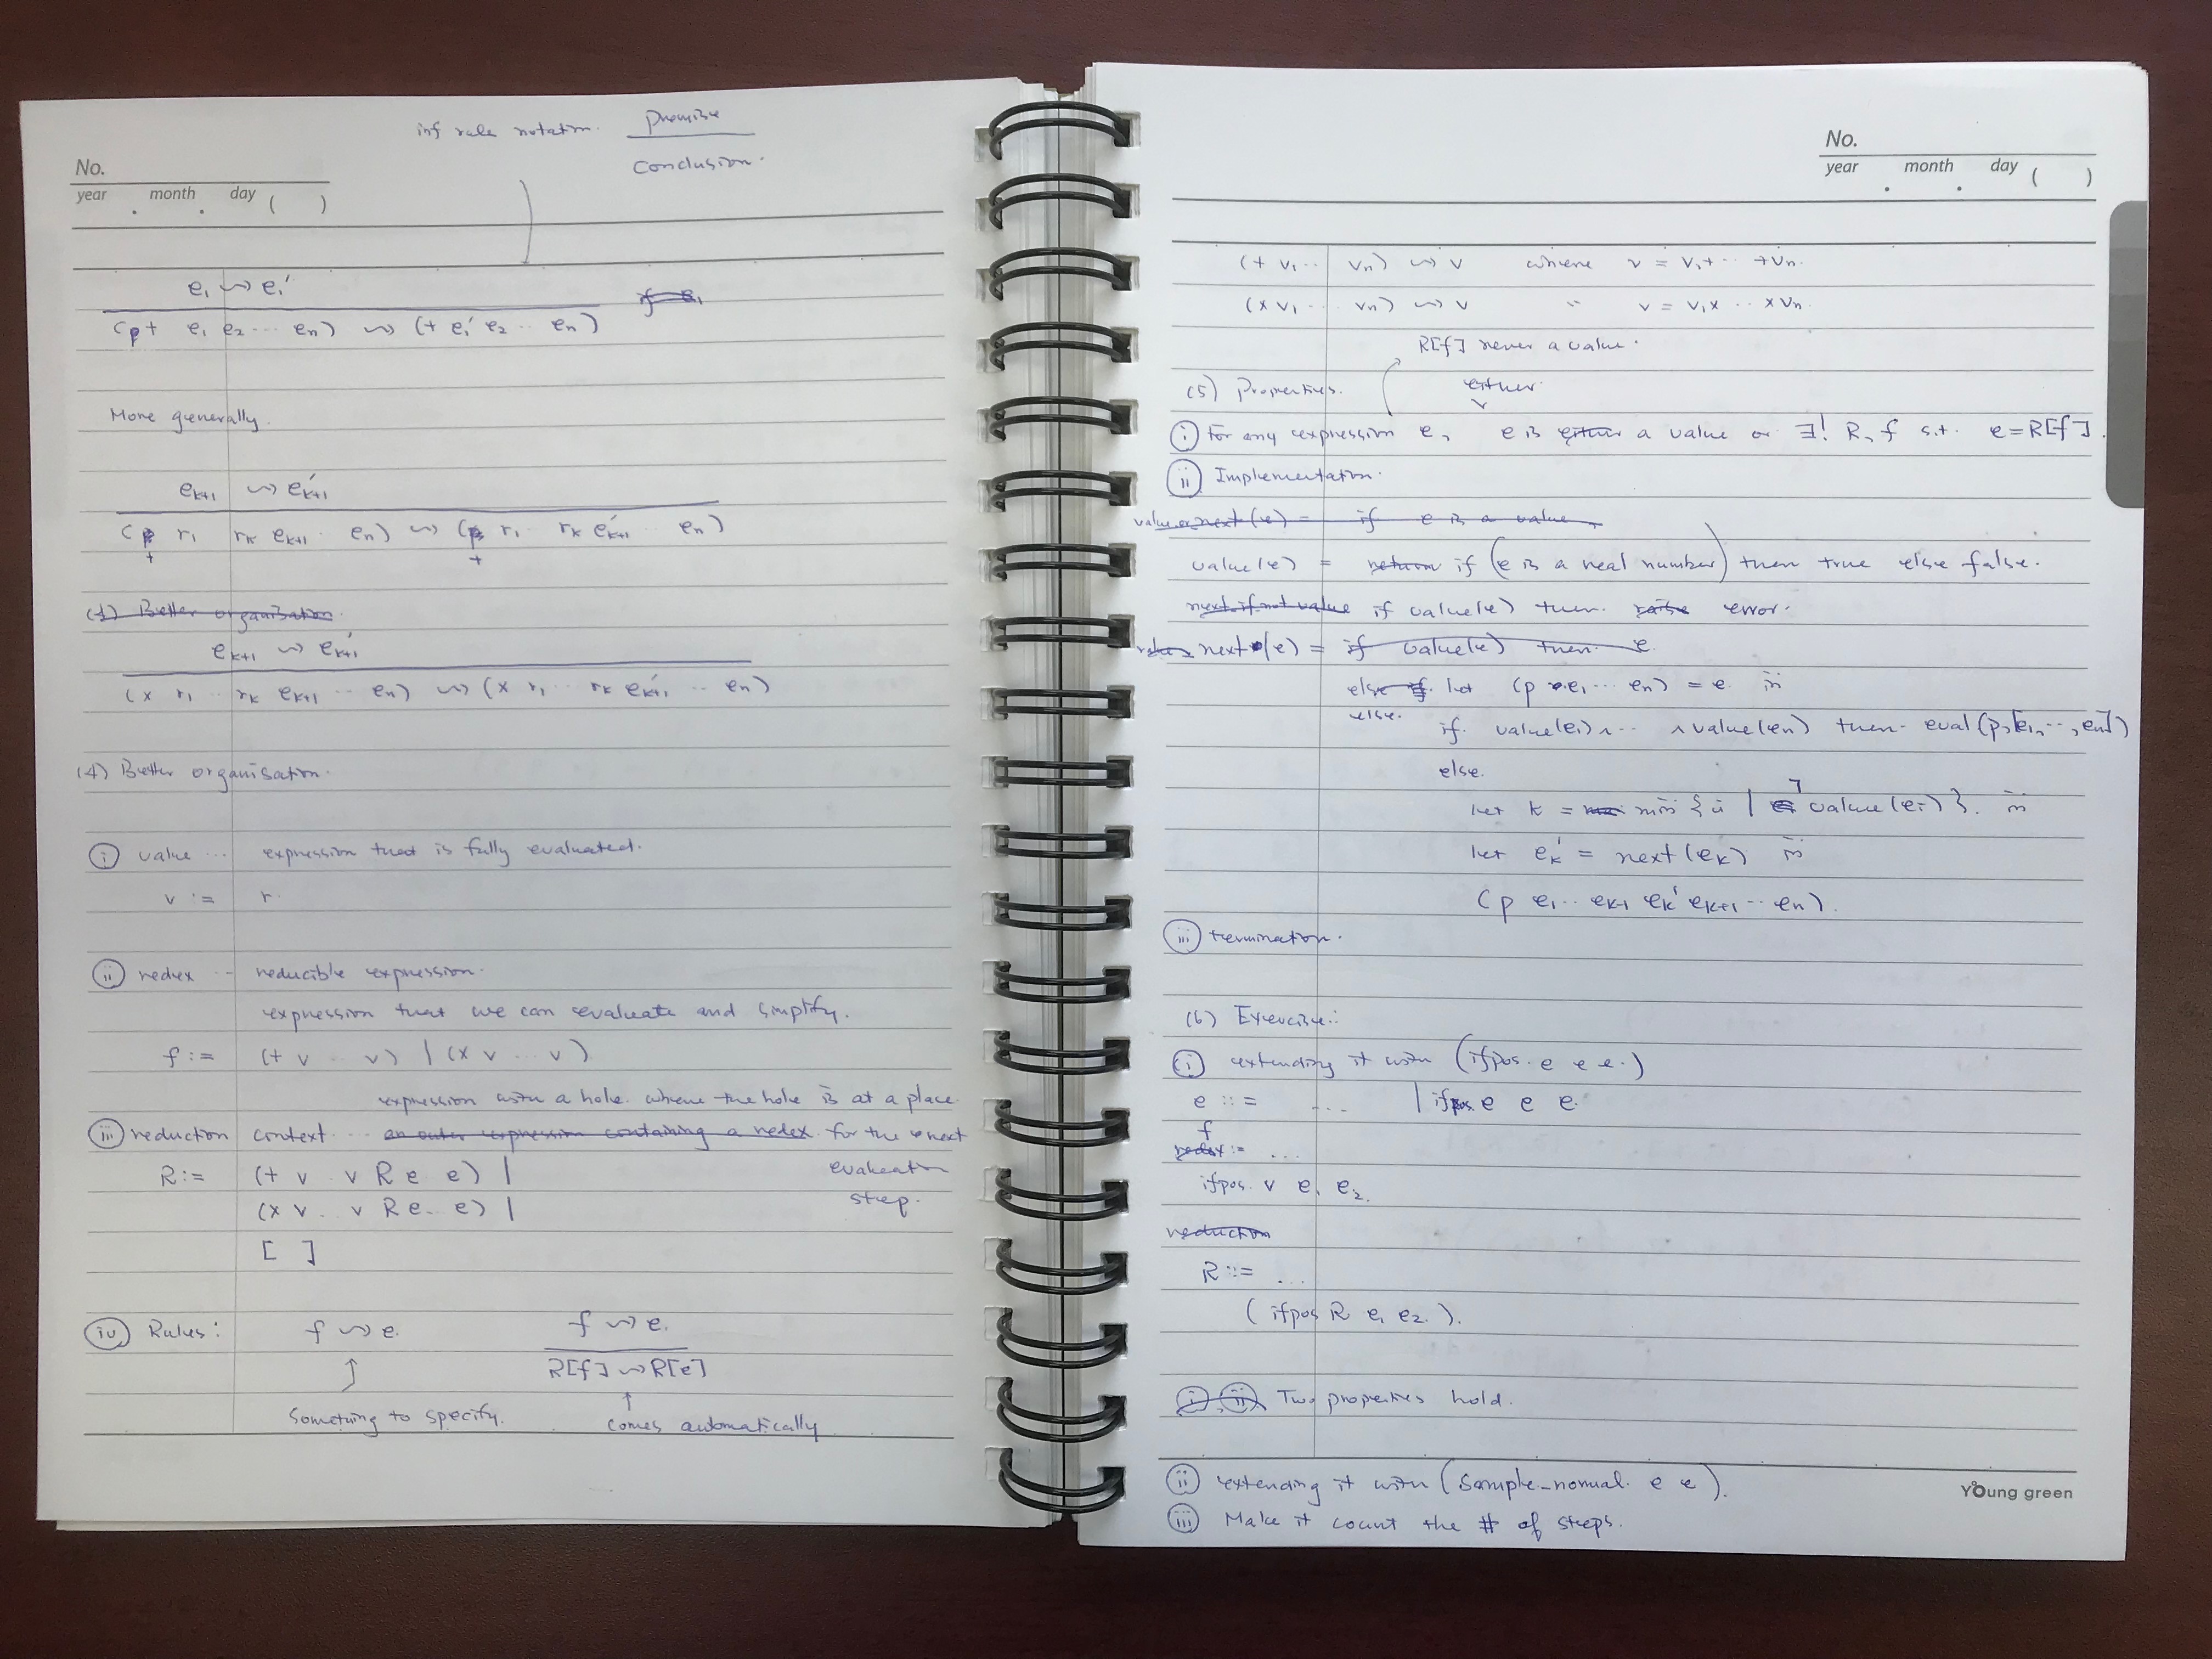 inf rule notation. premise
conclusion.
No.
year . month . day ( )
e₁ ⇝ e₁'
(+ e₁ e₂ ... eₙ) ⇝ (+ e₁' e₂ .. eₙ)
More generally.
eₖ₊₁ ⇝ e'ₖ₊₁
(+ r₁ rₖ eₖ₊₁ .. eₙ) ⇝ (+ r₁ .. rₖ e'ₖ₊₁ ... eₙ)
(4) Better organisation.
eₖ₊₁ ⇝ e'ₖ₊₁
(× r₁ .. rₖ eₖ₊₁ ... eₙ) ⇝ (× r₁ .. rₖ e'ₖ₊₁ .. eₙ)
(4) Better organisation.
(i) value ... expression that is fully evaluated.
v := r.
(ii) redex ... reducible expression.
expression that we can evaluate and simplify.
f := (+ v ... v) | (× v ... v)
expression with a hole. where the hole is at a place.
(iii) reduction context ... an outer expression containing a redex. for the next
R := (+ v . v R e e) | evaluation
(× v . v R e .. e) | step.
[ ]
(iv) Rules: f ⇝ e. f ⇝ e.
R[f] ⇝ R[e]
Something to specify. comes automatically
No.
year . month . day ( )
(+ v₁ ... vₙ) ⇝ v where v = v₁ + ... + vₙ.
(× v₁ ... vₙ) ⇝ v " v = v₁ × ... × vₙ.
R[f] never a value.
(5) Properties. either
(i) For any expression e, e is either a value or ∃! R, f s.t. e = R[f].
(ii) Implementation.
value or next (e) = if e is a value,
value(e) = return if (e is a real number) then true else false.
next if not value if value(e) then raise error.
next (e) = if value(e) then e
else if let (p e₁ ... eₙ) = e in
else.
if value(e₁) ∧ ... ∧ value(eₙ) then eval(p, [e₁, ..., eₙ])
else.
let k = min { i | ¬ value(eᵢ) }. in
let e'ₖ = next(eₖ) in
(p e₁ .. eₖ₋₁ e'ₖ eₖ₊₁ ... eₙ).
(iii) termination.
(6) Exercise:
(i) extending it with (ifpos. e e e.)
e ::= ... | ifpos e e e.
f
redex := ...
ifpos. v e₁ e₂.
reduction
R ::= ...
(ifpos R e₁ e₂.).
(i), (ii) Two properties hold.
(ii) extending it with (Sample_normal. e e).
(iii) Make it count the # of steps.
Young green